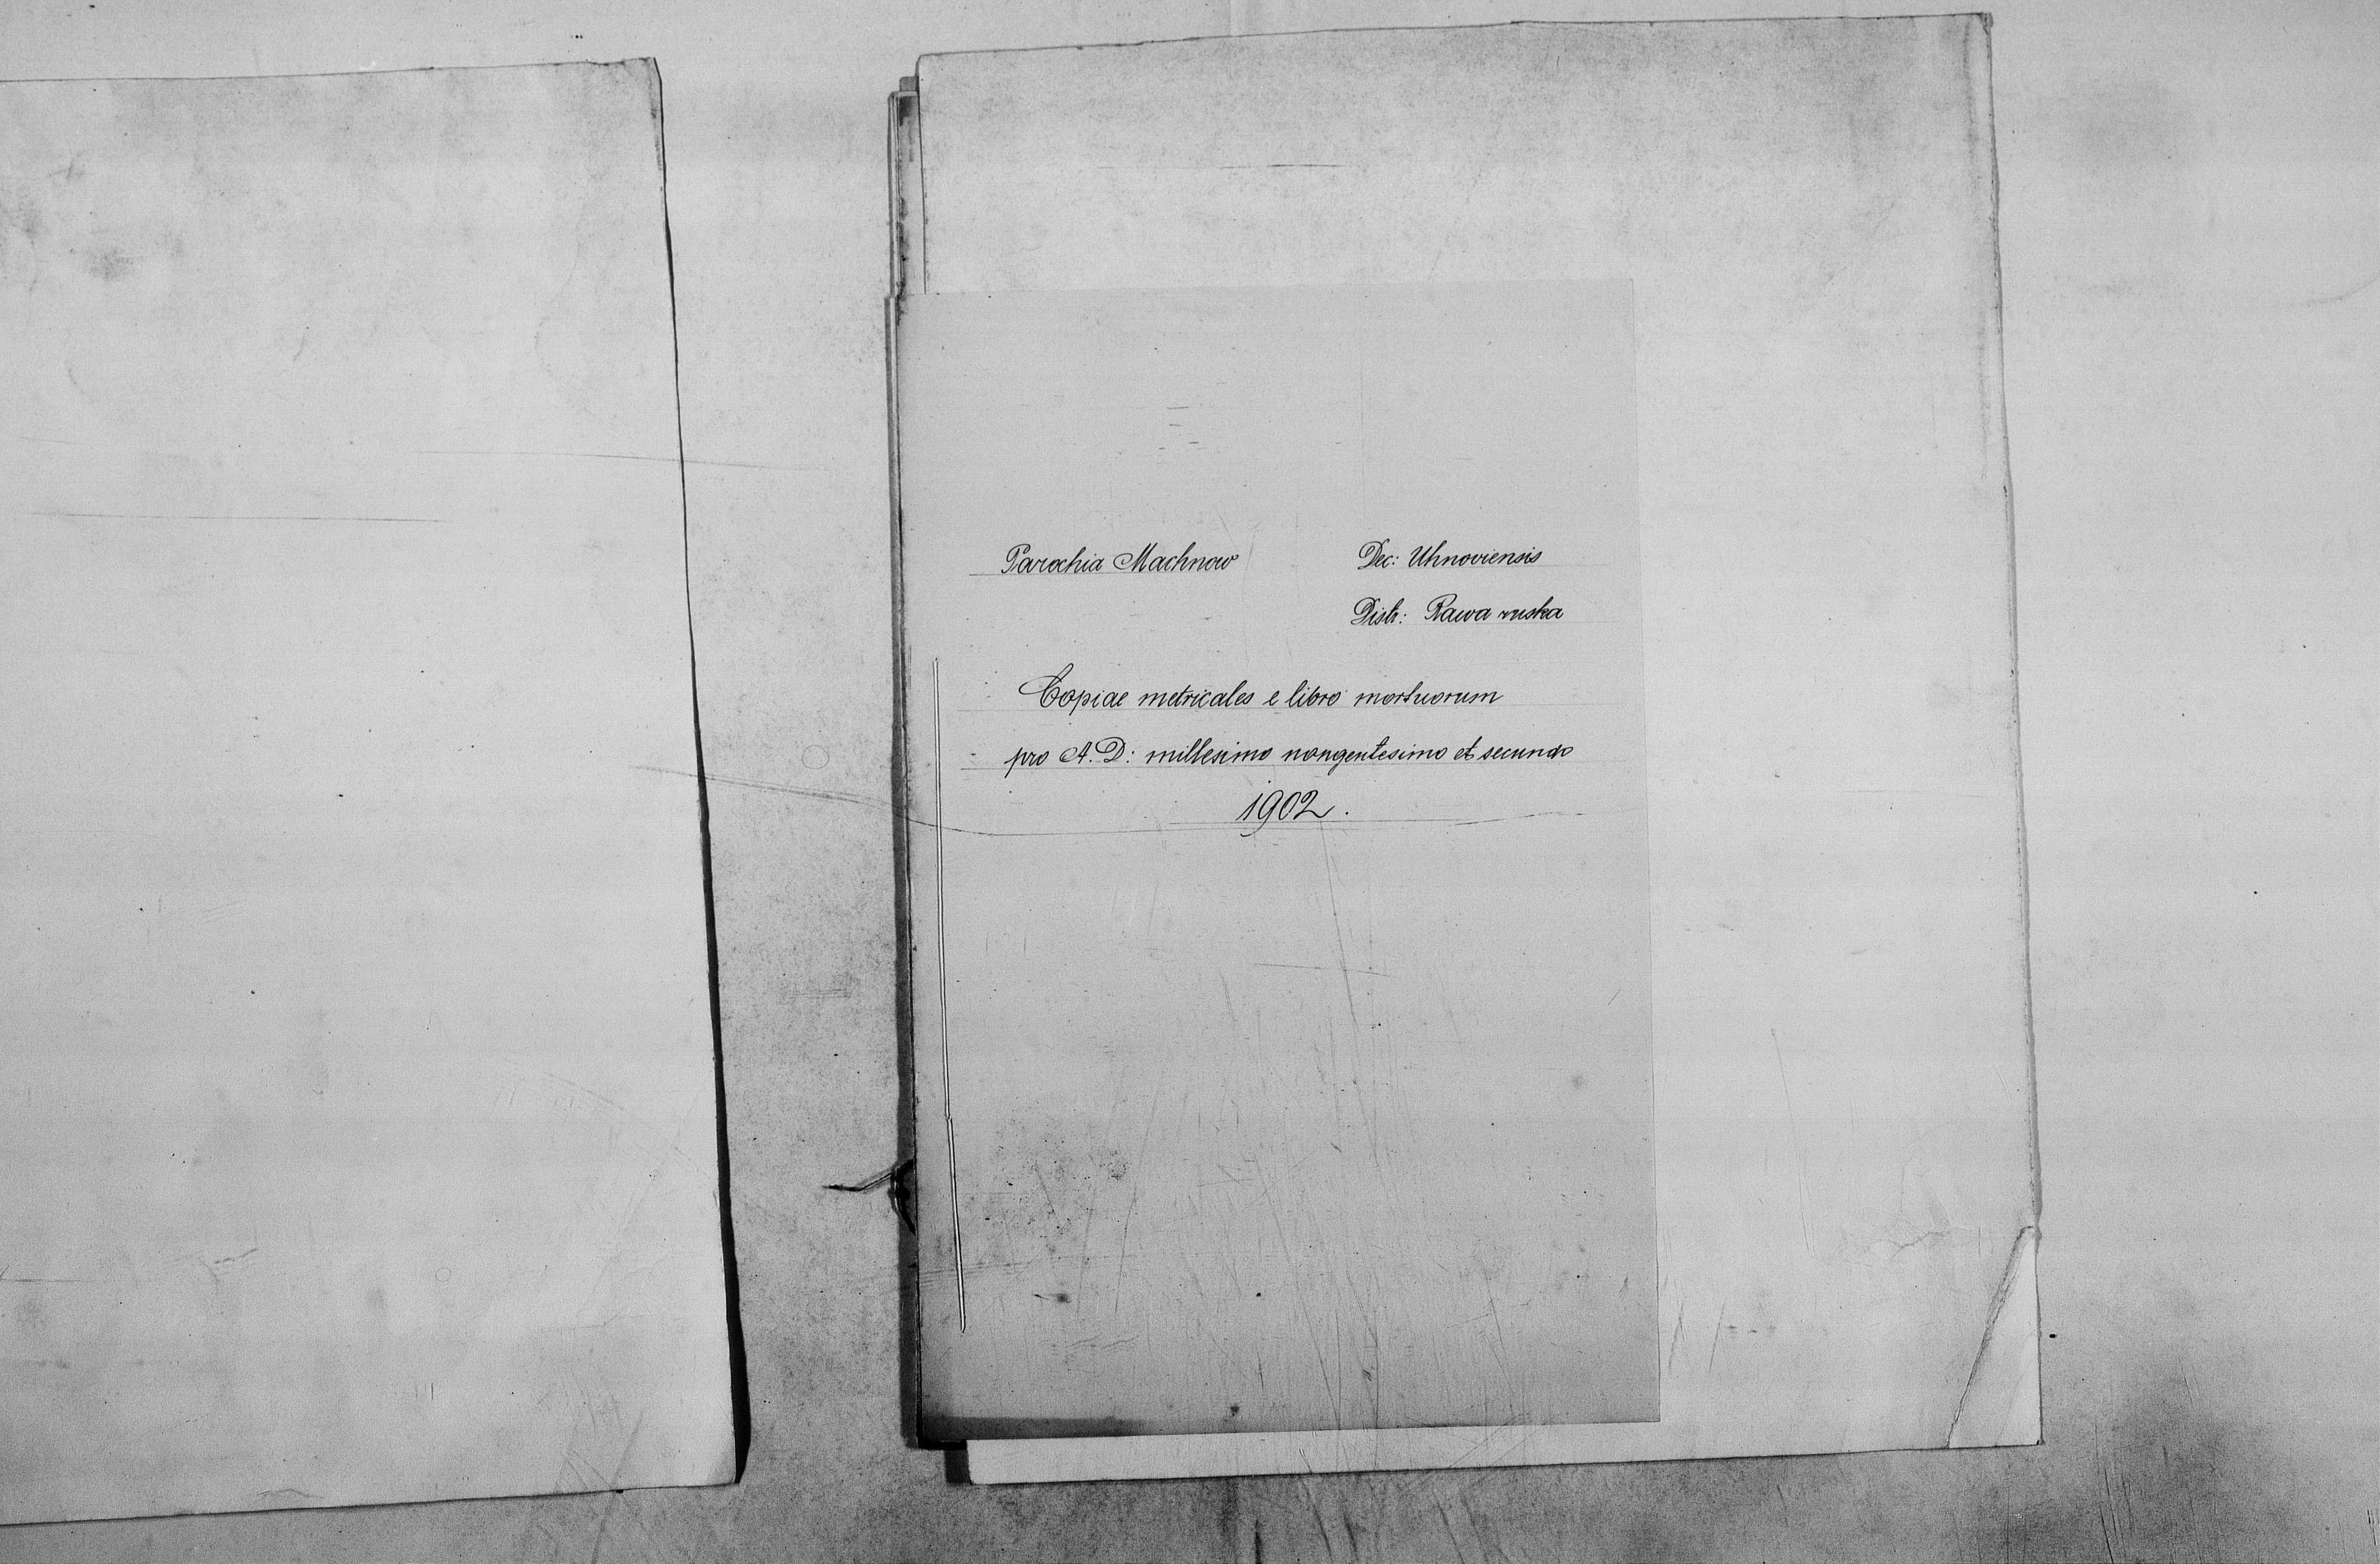 Parochia Machnow
Dec: Uhnoviensis
Distr: Rawa ruska
Copiae metricales e libro mortuorum
pro A. D: millesimo nongentesimo et secundo
1902.